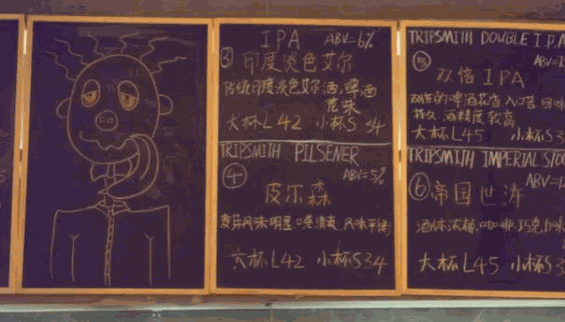 IPA ABV=6%
③ 印度淡色艾尔
传统印度淡色艾尔酒,啤酒
花味
大杯L 42 小杯S 34
TRIPSMITH PILSENER
④ ABV=5%
皮尔森
麦芽风味明显 口感清爽 风味平衡
大杯L42 小杯S34
TRIPSMITH DOUBLE I.P.A
⑤
双倍IPA
双倍的啤酒花 入口苦 回味
持久 酒精度较高
大杯L45 小杯S
TRIPSMITH IMPERIAL STOU
⑥ 帝国世涛
酒体浓郁,咖啡,巧克力味
大杯L45 小杯S